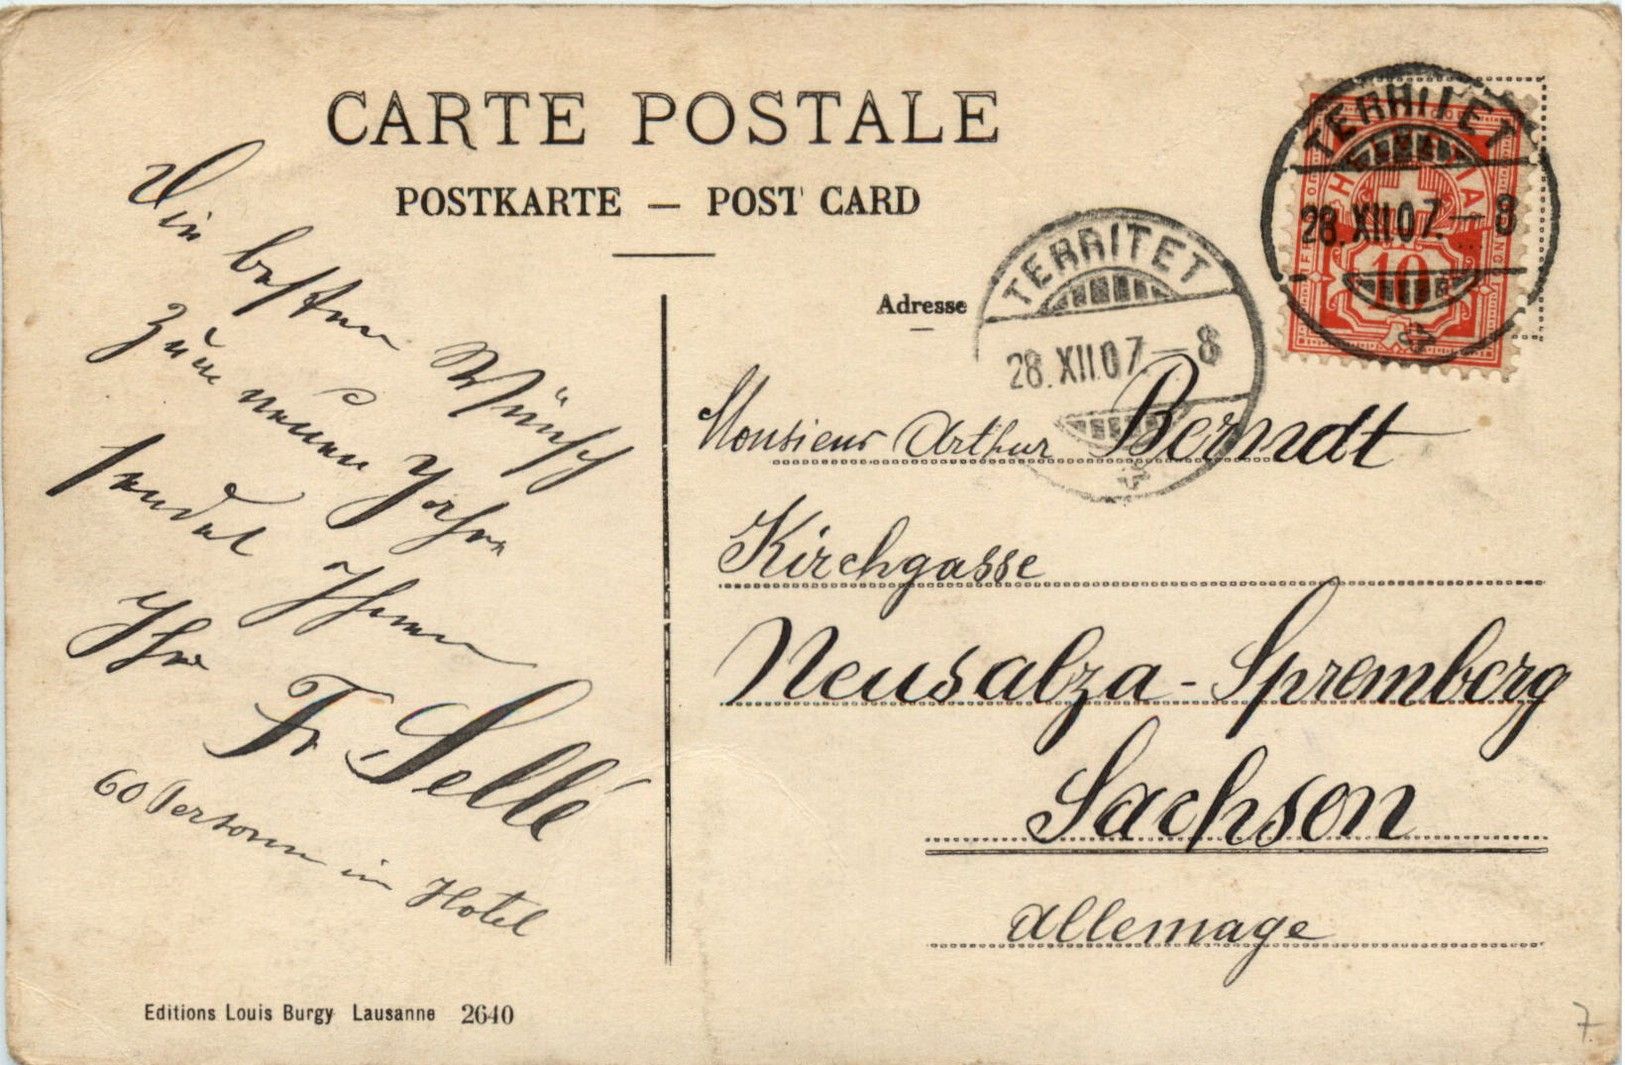 CARTE POSTALE
POSTKARTE — POST CARD
Die besten Wünsch
zum neuen Jahre
sendet Ihnen
Ihr
Fr Sellé
60 Personen in Hotel
Adresse
TERRITET
28.XII.07.—8
TERRITET
28.XII.07.—8
HELVETIA
FRANCO
10
Monsieur Arthur Berndt
Kirchgasse
Neusalza-Spremberg
Sachsen
Allemage
Editions Louis Burgy Lausanne 2640
7